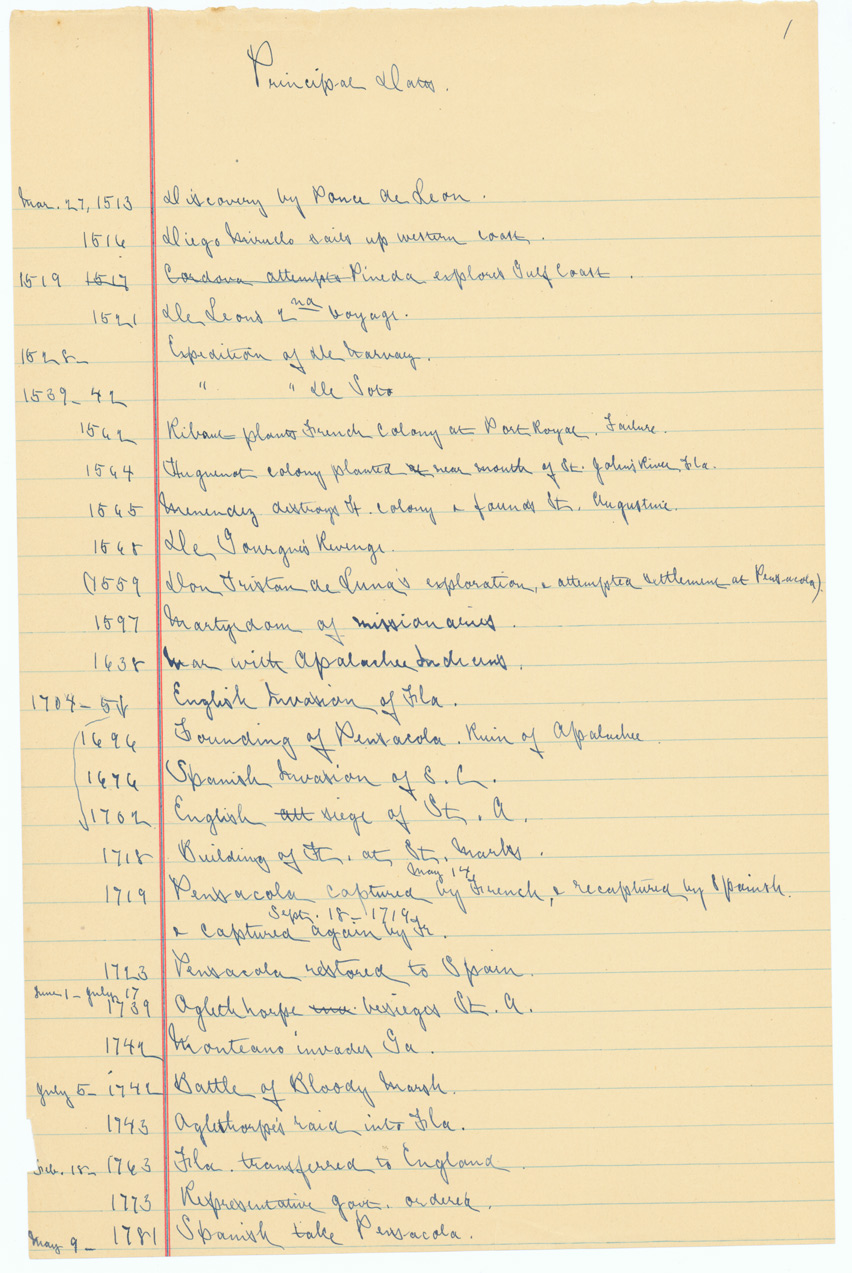 1
Principal Dates.
Mar. 27, 1513 Discovery by Ponce de Leon.
1516 Diego Miruelo sails up western coast.
1519 1517 Cordova attempts Pineda explores Gulf Coast.
1521 De Leon's 2nd Voyage.
1528- Expedition of De Narvaez.
1539-42 " " De Soto
1562 Ribaut plants French Colony at Port Royal. Failure.
1564 Huguenot colony planted at near mouth of St. John's River, Fla.
1565 Menendez destroys Fr. colony & founds St. Augustine.
1568 De Gourgues Revenge.
(1559 Don Tristan de Luna's exploration, & attempted settlement at Pensacola).
1597 Martyrdom of missionaries.
1638 War with Apalachee Indians.
1704- English Invasion of Fla.
1696 Founding of Pensacola. Ruin of Apalachee
1676 Spanish Invasion of S. C.
1702 English att siege of St. A.
1718 Building of Ft. at St. Marks.
May 14
1719 Pensacola captured by French, & recaptured by Spanish
Sept. 18-1719
& captured again by Fr.
1723 Pensacola restored to Spain.
June 1 - July 17
1739 Oglethorpe besieges St. A.
1742 Monteano invades Ga.
July 5- 1742 Battle of Bloody Marsh.
1743 Oglethorpe's raid into Fla.
Feb. 18- 1763 Fla. transferred to England.
1773 Representative govt. ordered.
May 9- 1781 Spanish take Pensacola.